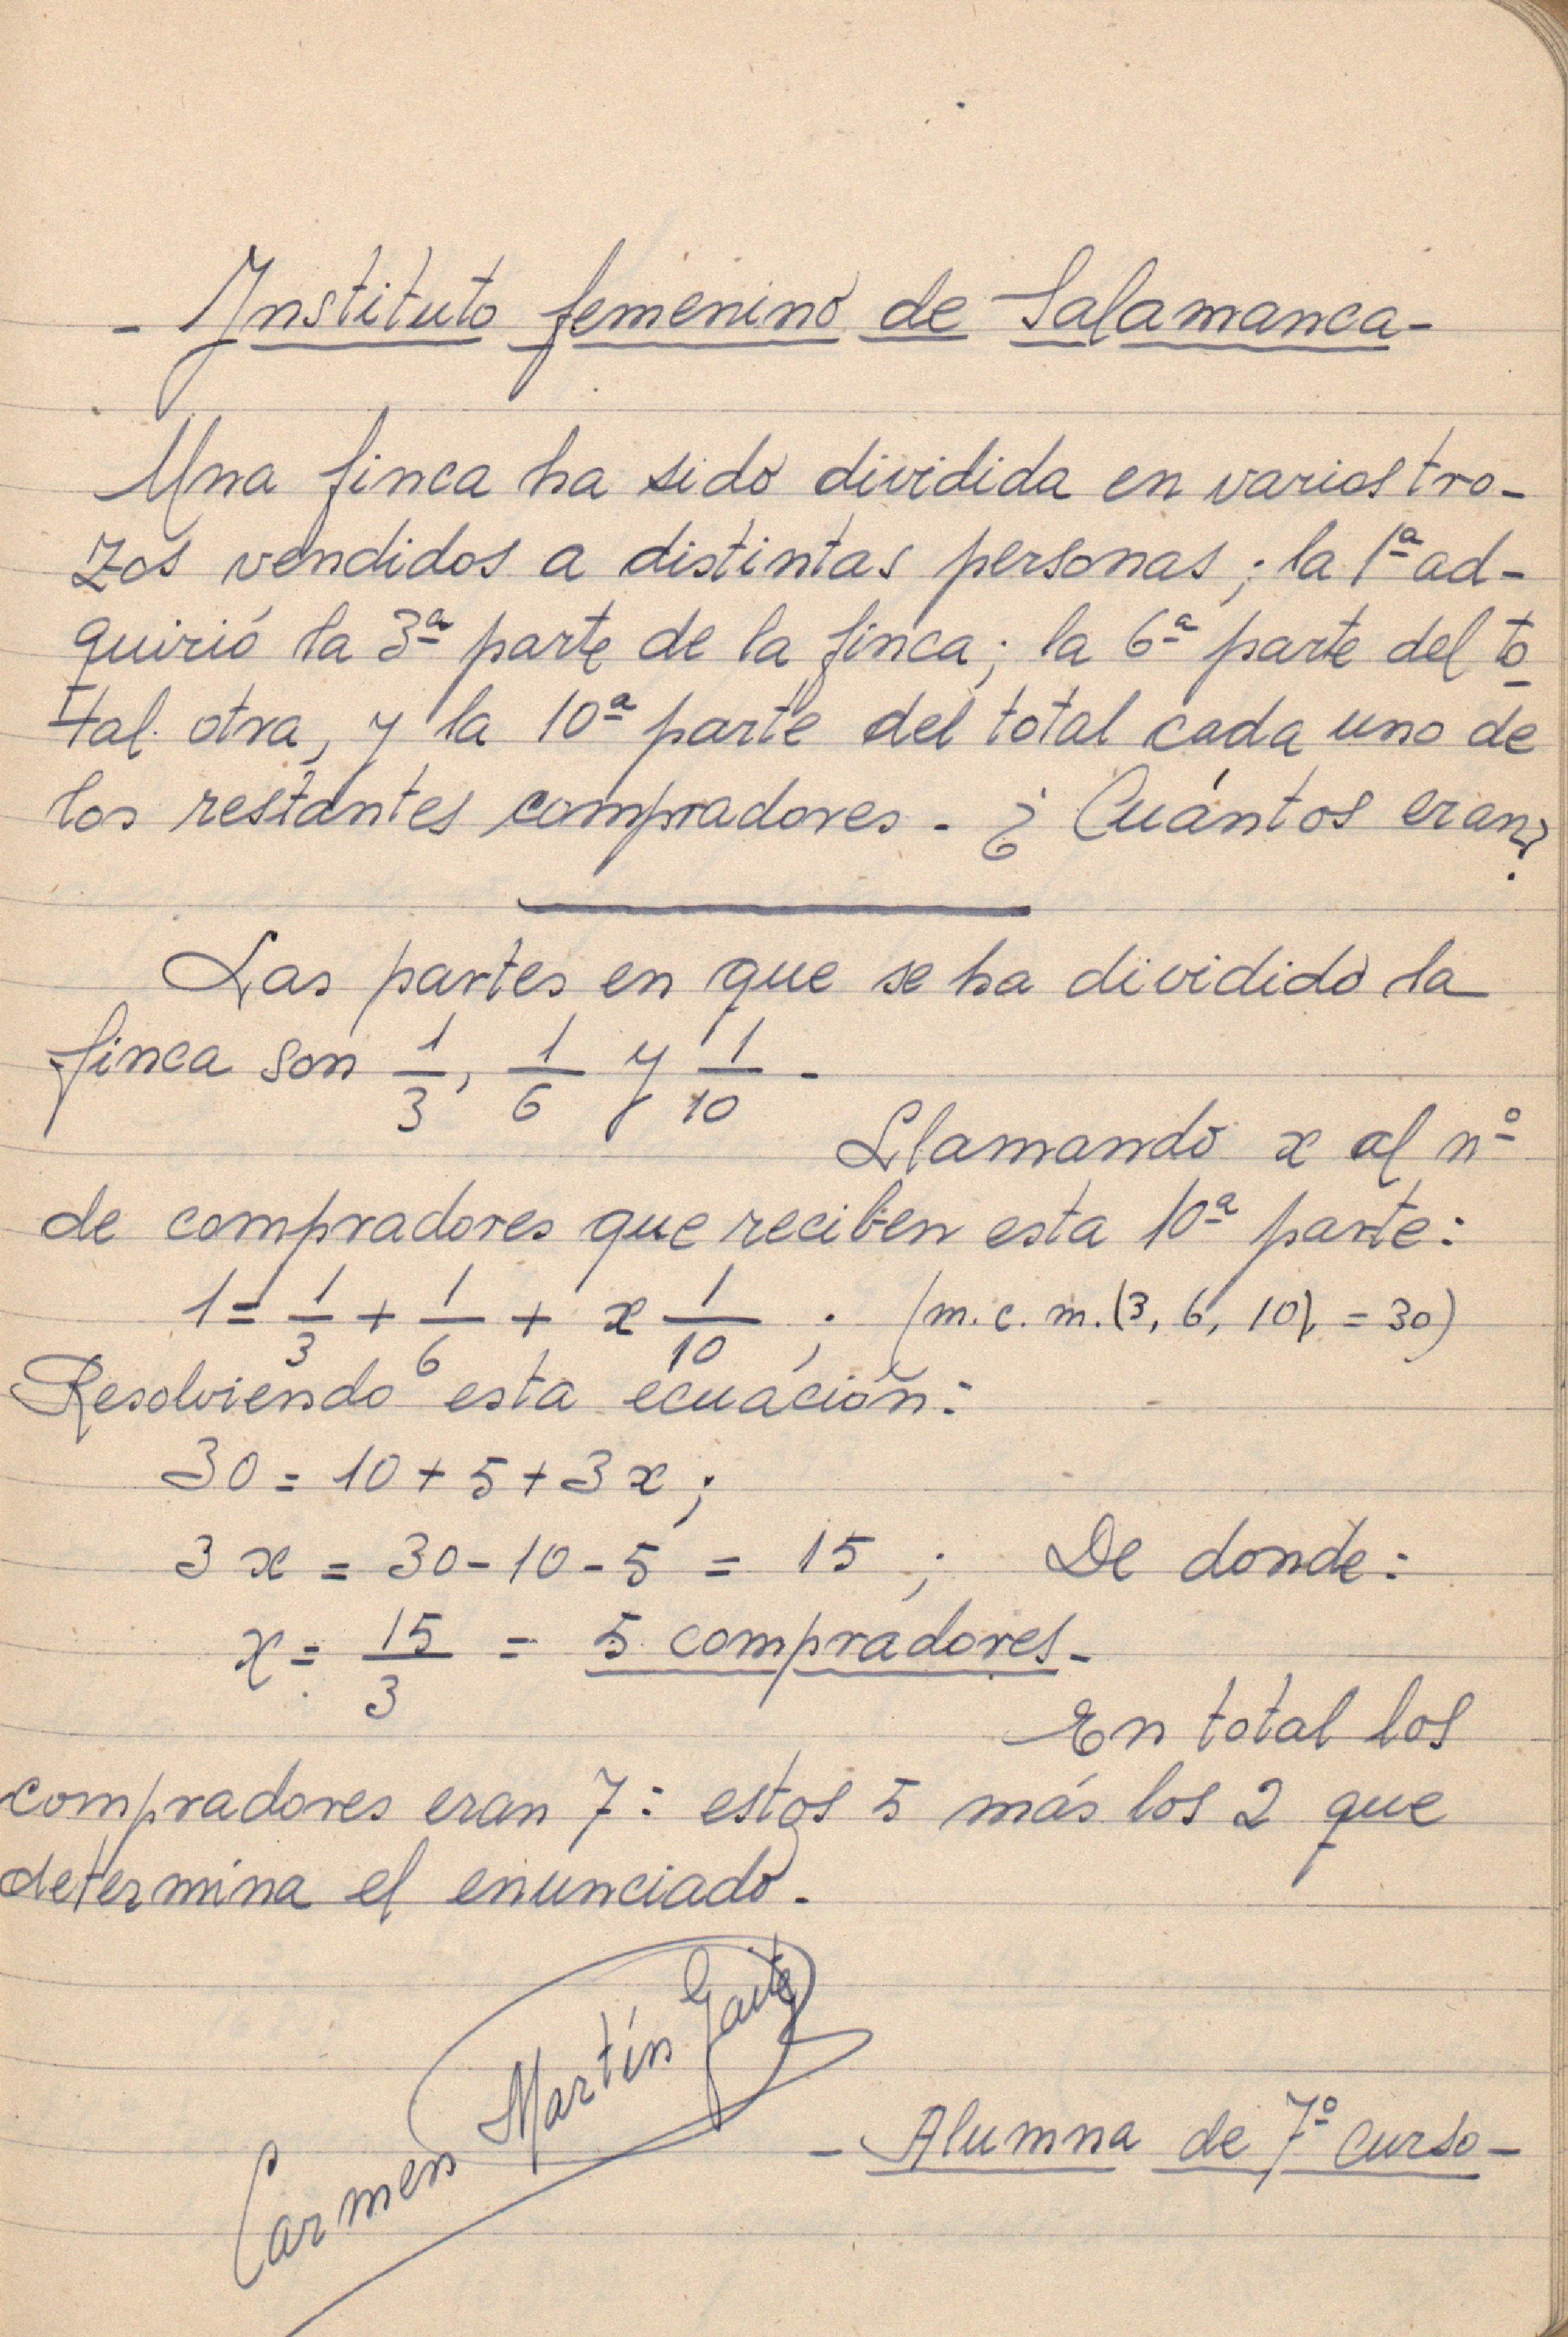 - Instituto femenino de Salamanca -
Una finca ha sido dividida en varios tro-
zos vendidos a distintas personas; la 1ª ad-
quirió la 3ª parte de la finca; la 6ª parte del to
tal otra, y la 10ª parte del total cada uno de
los restantes compradores - ¿Cuántos eran?
Las partes en que se ha dividido la
finca son 1/3, 1/6 y 1/10 -
Llamando x al nº
de compradores que reciben esta 10ª parte:
1 = 1/3 + 1/6 + x 1/10 ; (m. c. m. (3, 6, 10) = 30)
Resolviendo esta ecuación:
30 = 10 + 5 + 3x;
3x = 30 - 10 - 5 = 15 ; De donde:
x = 15/3 = 5 compradores -
En total los
compradores eran 7: estos 5 más los 2 que
determina el enunciado -
Carmen Martín Gaite
- Alumna de 7º curso -